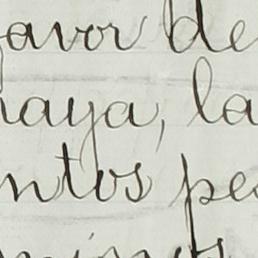 favor de
haya, la
ntos pes